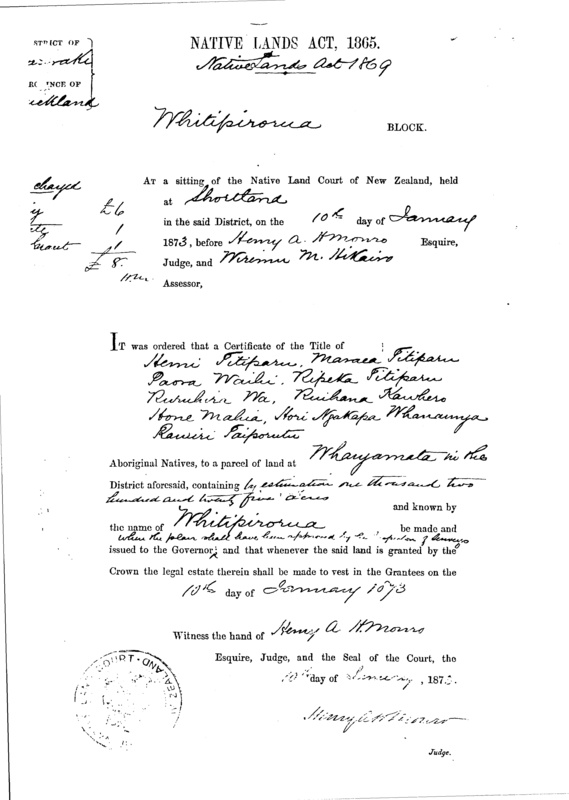 STRICT OF
NATIVE LANDS ACT, 1865.
Native Lands Act 1869
INCE OF
uckland
Whitipirorua BLOCK.
AT a sitting of the Native Land Court of New Zealand, held
at Shortland
in the said District, on the 10th day of January
1873, before Henry A. H Monro Esquire,
Judge, and Wiremu M. Hikairo
Assessor,
charged
£6
1
1
£ 8.
IT was ordered that a Certificate of the Title of
Hemi Titiparu, Maraea Titiparu
Paora Waihi, Ripeka Titiparu
Wa, Ruihana Kawhero
Hone Mahia, Hori Ngakapa Whanaunga
Rawiri Taiporutu
Aboriginal Natives, to a parcel of land at Whangamata in the
District aforesaid, containing by estimation one thousand two
hundred and twenty five acres
and known by
the name of Whitipirorua be made and
when the plan shall have been approved by the Inspector of Surveys
issued to the Governor, and that whenever the said land is granted by the
Crown the legal estate therein shall be made to vest in the Grantees on the
10th day of January 1873
Witness the hand of Henry A H. Monro
Esquire, Judge, and the Seal of the Court, the
10th day of January, 1873.
Henry A H Monro
Judge.